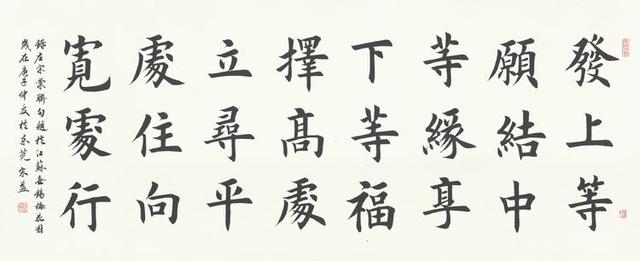 發上等
願結中
等緣享
下等福
擇髙處
立尋平
處住向
寬處行
錄左宗棠聯句題於江蘇無錫梅花園
歲在庚子仲夏於東莞